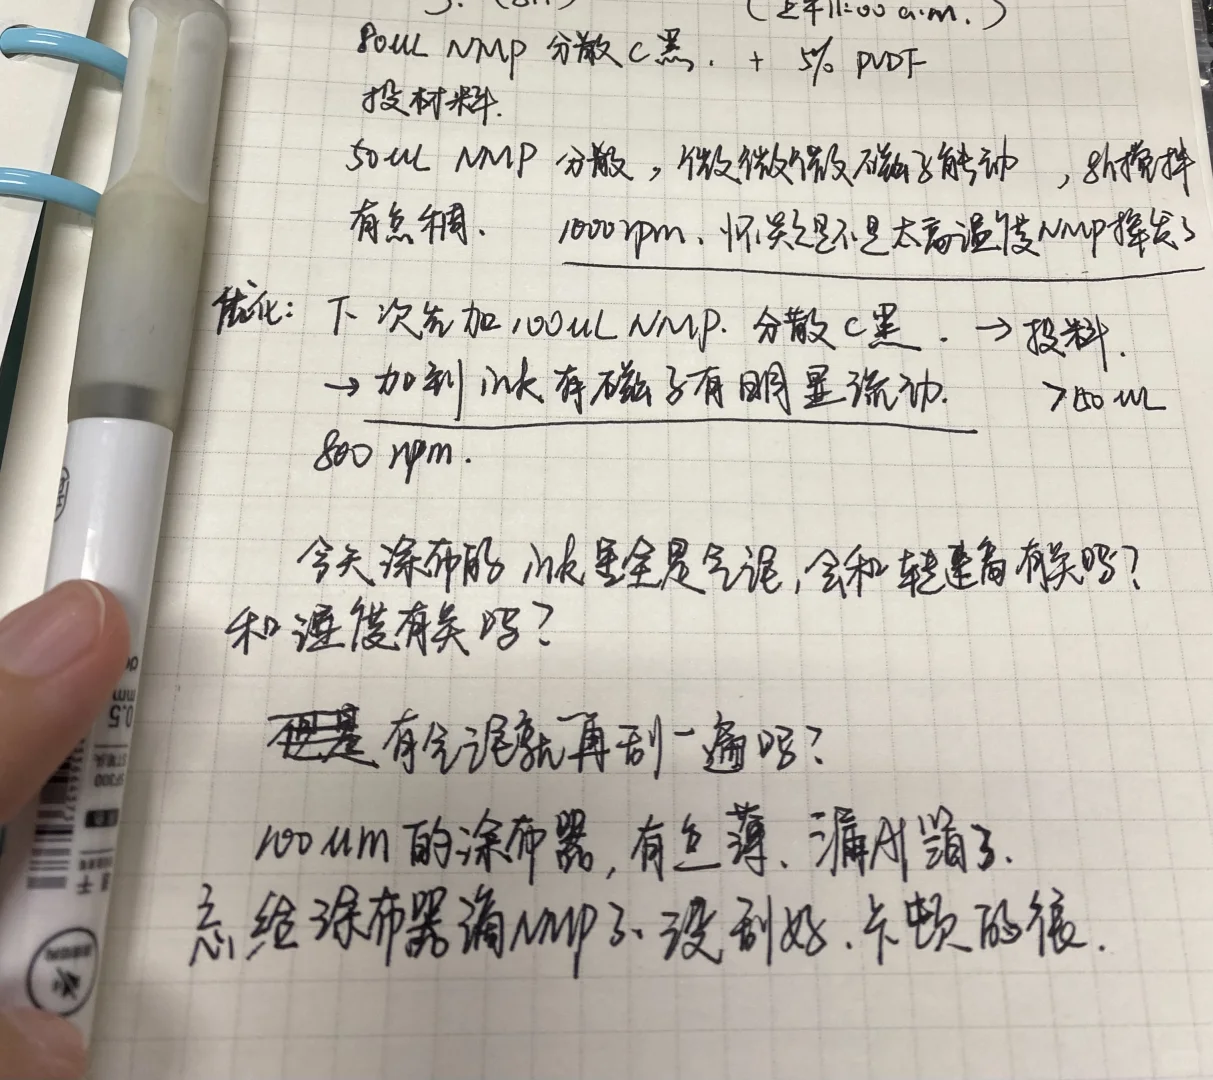 (8h) (上午11:00 a.m.)
80uL NMP 分散C黑. + 5% PVDF
投材料.
50uL NMP 分散, 微微微微磁子能动, 8h搅拌
有点稠. 1000rpm. 怀疑是不是太高温度NMP挥发了
优化: 下次先加100uL NMP. 分散C黑. → 投料.
→ 加到 ink 有磁子有明显流动. >50uL
800 rpm.
今天涂布的 ink 里全是气泡, 会和转速高有关吗?
和温度有关吗?
有气泡就再刮一遍吗?
100um的涂布器, 有点薄. 漏Al箔了.
忘给涂布器滴NMP了. 没刮好. 卡顿的很.
0.5
mm